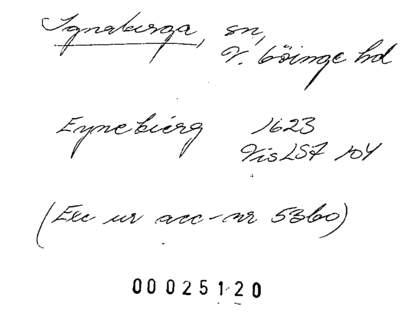 Ignaberga, sn,
V. Göinge hd
Eynebierg 1623
VisLSF 104
(Exc ur acc-nr 5360)
00025120